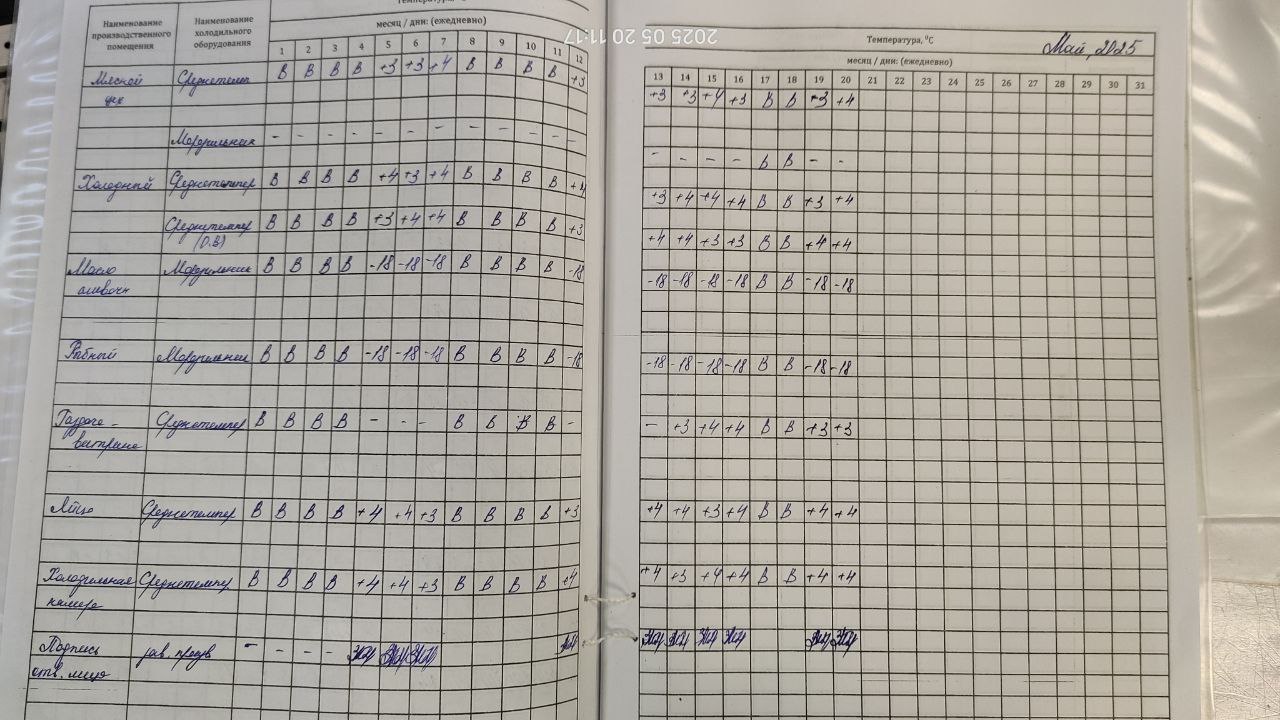 Температура, °С
Наименование производственного помещения
Наименование холодильного оборудования
месяц / дни: (ежедневно)
1 2 3 4 5 6 7 8 9 10 11 12
Мясной Среднетемп В В В В +3 +3 +4 В В В В +3
цех
Морозильник - - - - - - - - - - - -
Холодный Среднетемпер В В В В +4 +3 +4 В В В В +4
Среднетемпер В В В В +3 +4 +4 В В В В +3
(О.В)
Масло Морозильник В В В В -18 -18 -18 В В В В -18
сливочн
Рыбный Морозильник В В В В -18 -18 -18 В В В В -18
Раздача - Среднетемпер В В В В - - - В В В В -
витрина
Яйцо Среднетемпер В В В В +4 +4 +3 В В В В +3
Холодильная Среднетемпер В В В В +4 +4 +3 В В В В +4
камера
Подпись зав. произв - - - -
отв. лица
2025 05 20 11:17
Температура, °С
Май, 2025
месяц / дни: (ежедневно)
13 14 15 16 17 18 19 20 21 22 23 24 25 26 27 28 29 30 31
+3 +3 +4 +3 В В +3 +4
- - - - В В - -
+3 +4 +4 +4 В В +3 +4
+4 +4 +3 +3 В В +4 +4
-18 -18 -18 -18 В В -18 -18
-18 -18 -18 -18 В В -18 -18
- +3 +4 +4 В В +3 +3
+4 +4 +3 +4 В В +4 +4
+4 +3 +4 +4 В В +4 +4